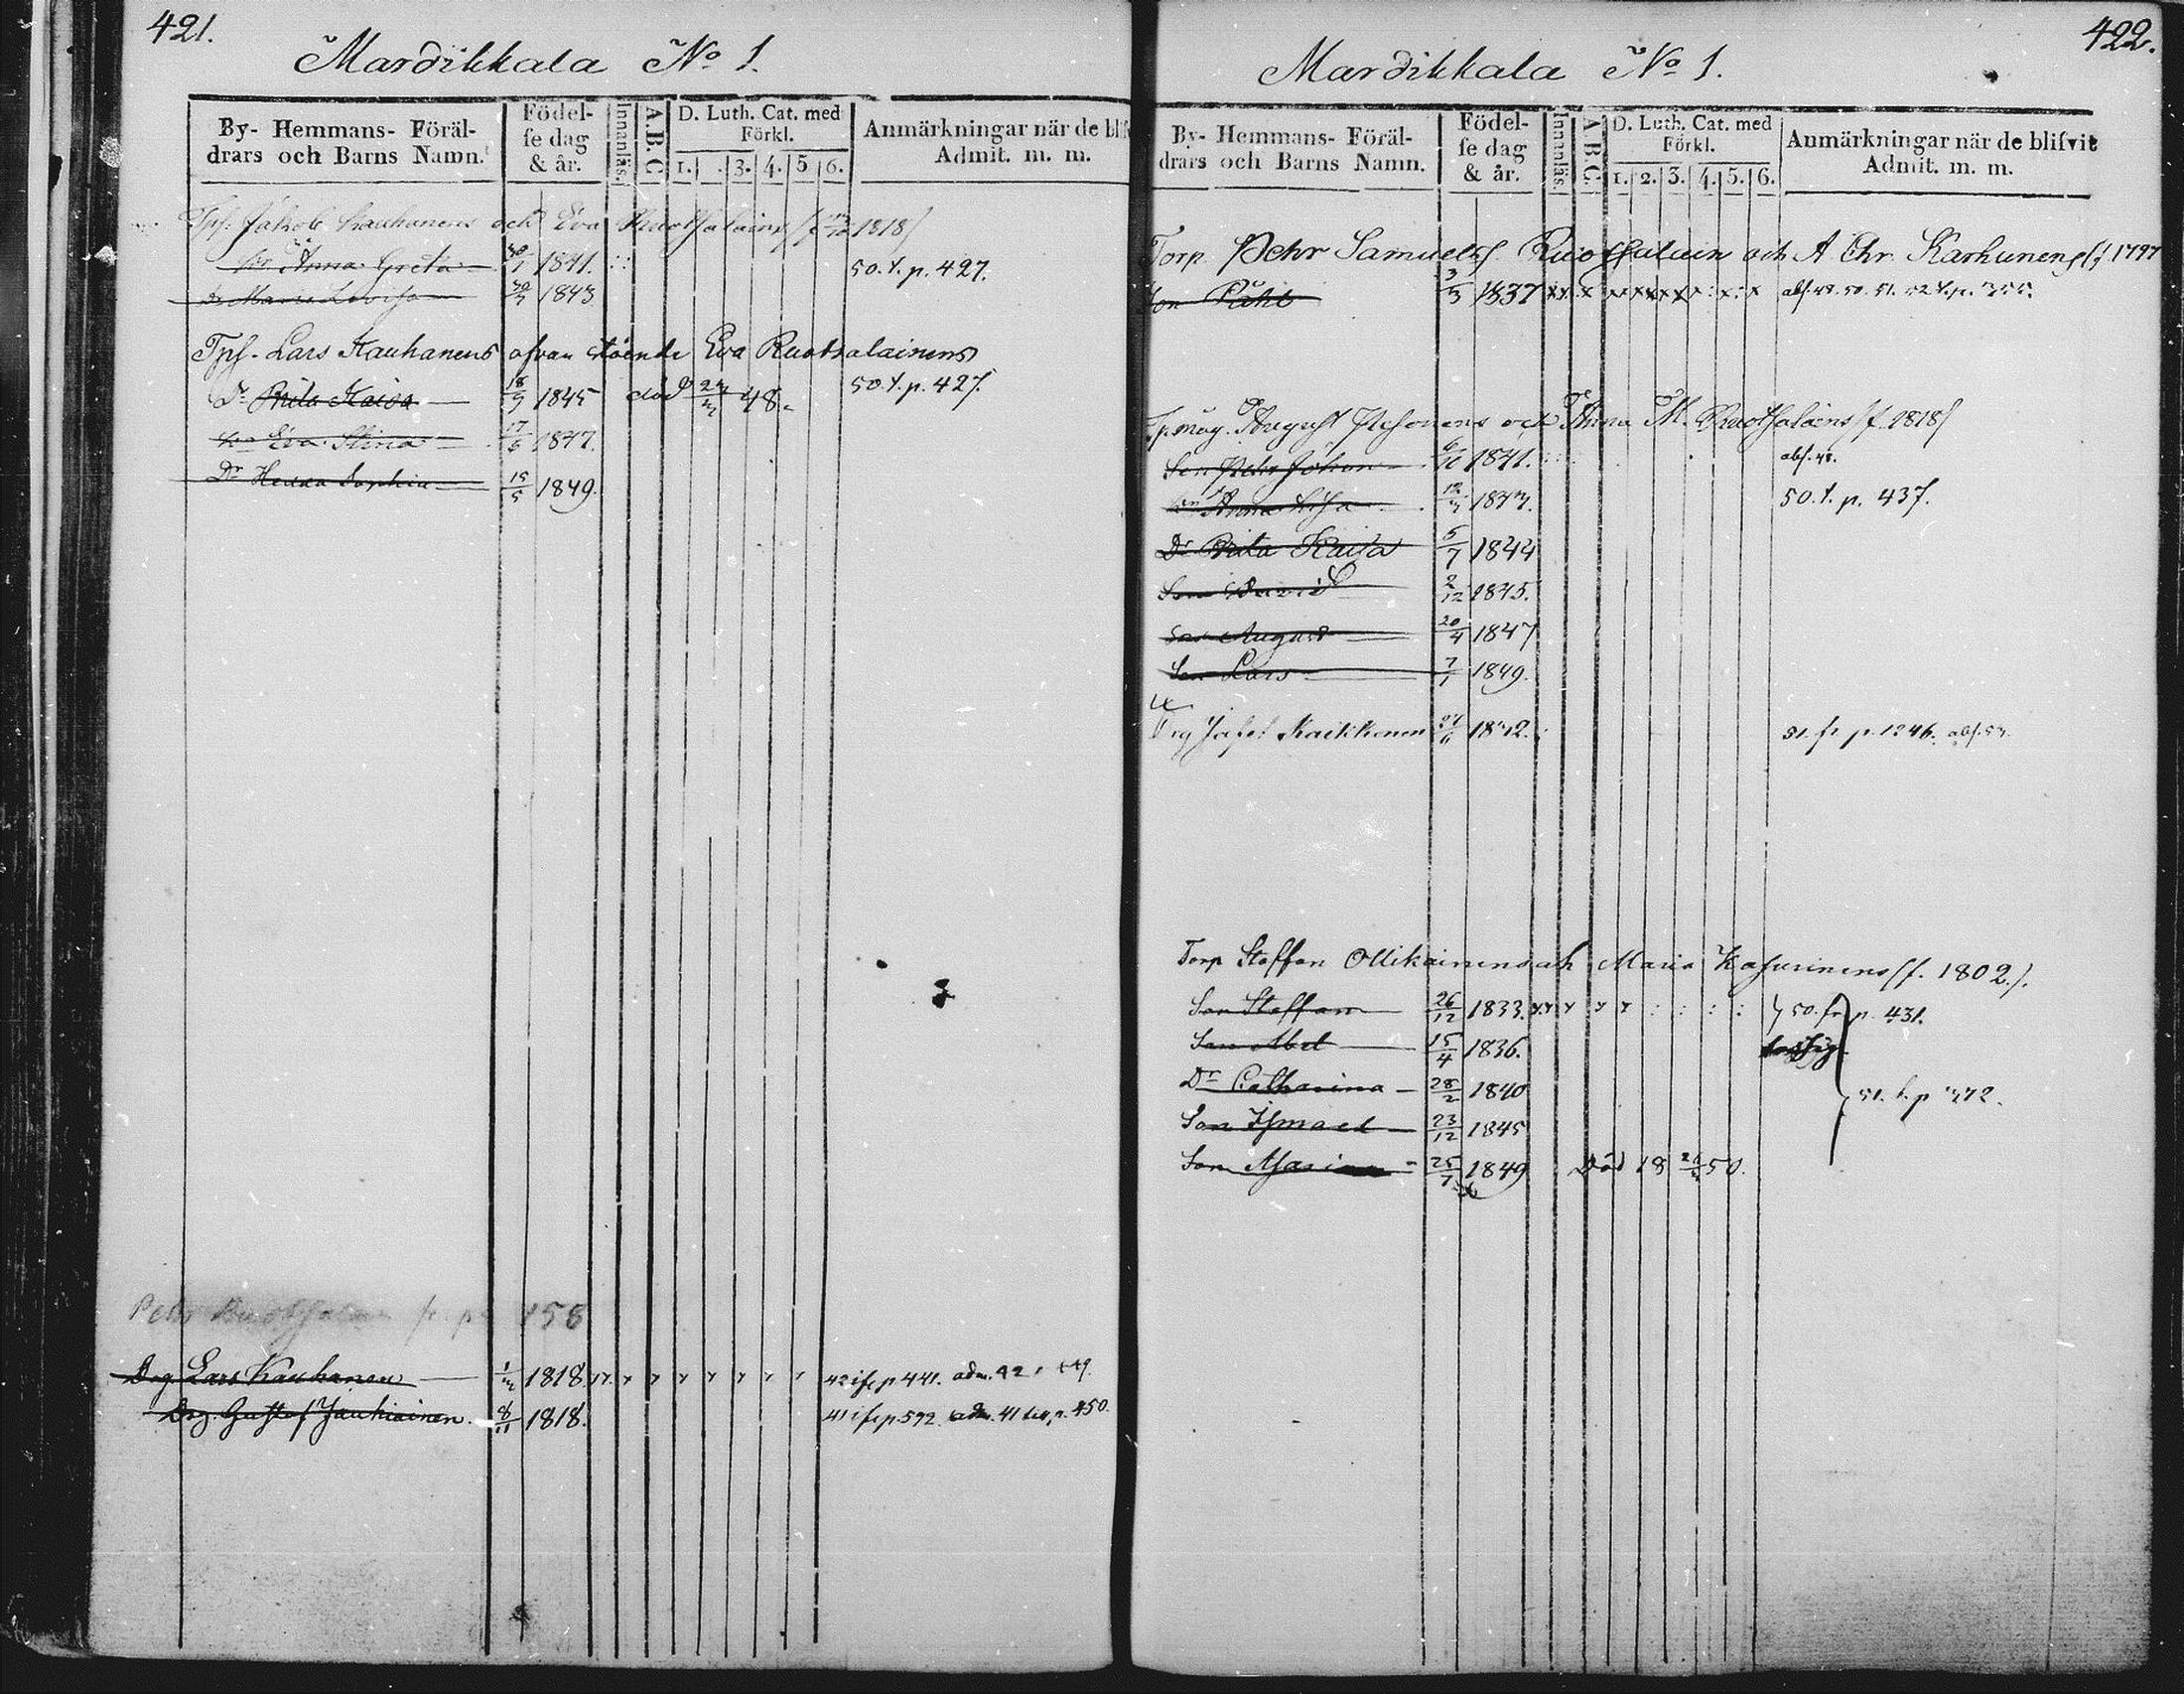 421.
Mardikkala No 1.
By- Hemmans- Föräl-
drars och Barns Namn.
Födel-
se dag
& år.
Innanläs.
A.B.C
D. Luth. Cat. med
Förkl.
1. . 3. 4. 5 6.
Anmärkningar när de blif
Admit. m. m.
Tpf. Jakob Kauhanens och Eva Ruotsalains 1818
Dr Anna Greta 1841. 50. t. p. 427.
Dr Maria Lovisa 1843
Tpf. Lars Kauhanens ofvan stående Eva Ruotsalainens
Dr Brita Kaisa 18 1845 död 48. 50. t. p. 427.
Dr Eva Stina 17/5 1847.
Dr Helena Sophia 15/5 1849.
Pehr fr. p. 158
Drg. Lars Kauhanen 1818. 42 ifr p 441. adm. 42 49.
Drg. Gustof Jauhiainen. 8/11 1818. 41 ifr p 592. adm. 41 p. 450.
422.
Mardikkala No 1.
By- Hemmans- Föräl-
drars och Barns Namn.
Födel-
se dag
& år.
Innanläs.
A.B.C.
D. Luth. Cat. med
Förkl.
1. 2. 3. 4. 5. 6.
Anmärkningar när de blifvit
Admit. m. m.
Torp. Pehr Samuels Ruotsalain och A Chr. Karhunens (f 1797
Son 3/3 1837 abs. 49. 50. 51. 52 t. p.
August och Anna M. Ruotsalains (f. 1818)
Son Pehr Johan 6/10 1841. abs. 48.
Anna Lisa 12 1843. 50. t. p. 437.
Dr Brita Kaisa 5/7 1844
Son David 2/12 1845.
Son August 20/4 1847
Son Lars 7/1 1849.
Drg Josef Kaikkonen 1832. 51. fr p. 1246. abs. 53.
Torp Staffan Ollikainens och Maria Kasurinens (f. 1802.).
Son Staffan 26/12 1833. 50. fr. p. 431.
Son Abel 15/4 1836.
Dr Catharina 28/2 1840 51. t. p 372.
Son Ismael 23/12 1845
Son 25/1 1849 Död 18 50.